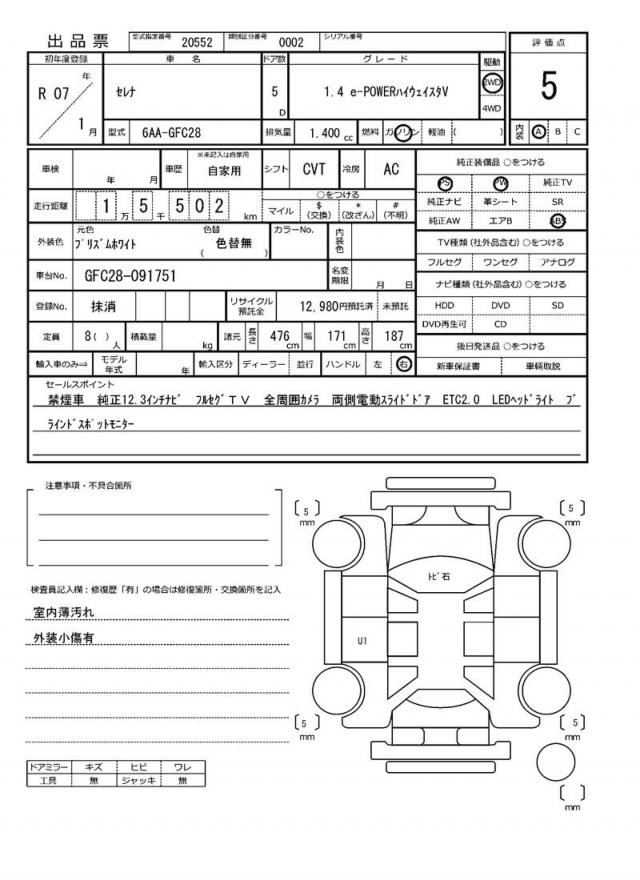 出品票 型式指定番号 20552 類別区分番号 0002 シリアル番号
評価点
5
内装 A B C
初年度登録 車名 ドア数 グレード 駆動
R 07 年 1月
セレナ 5 D 1.4 e-POWERハイウェイスタV 2WD 4WD
型式 6AA-GFC28 排気量 1.400 cc 燃料 ガソリン 軽油 ( )
車検 年 月 車歴 ※未記入は自家用 自家用 シフト CVT 冷房 AC
走行距離 1万5千502 km ○をつける
マイル $(交換) *(改ざん) #(不明)
外装色 元色 プリズムホワイト 色替 ( 色替無 ) カラーNo. 内装色
車台No. GFC28-091751 名変期限 月 日
登録No. 抹消 リサイクル預託金 12,980円預託済 未預託
定員 8( )人 積載量 kg 諸元 長さ 476cm 幅 171cm 高さ 187cm
輸入車のみ⇒ モデル年式 年 輸入区分 ディーラー 並行 ハンドル 左 右
純正装備品 ○をつける
PS PW 純正TV
純正ナビ 革シート SR
純正AW エアB ABS
TV種類(社外品含む)○をつける
フルセグ ワンセグ アナログ
ナビ種類(社外品含む)○をつける
HDD DVD SD
DVD再生可 CD
後日発送品 ○をつける
新車保証書 車輌取説
セールスポイント
禁煙車 純正12.3インチナビ フルセグTV 全周囲カメラ 両側電動スライドドア ETC2.0 LEDヘッドライト ブ
ラインドスポットモニター
注意事項・不具合箇所
検査員記入欄：修復歴「有」の場合は修復箇所・交換箇所を記入
室内薄汚れ
外装小傷有
ドアミラー キズ ヒビ ワレ
工具 無 ジャッキ 無
[ 5 ] mm
[ 5 ] mm
トビ石
U1
[ 5 ] mm
[ 5 ] mm
[ ] mm